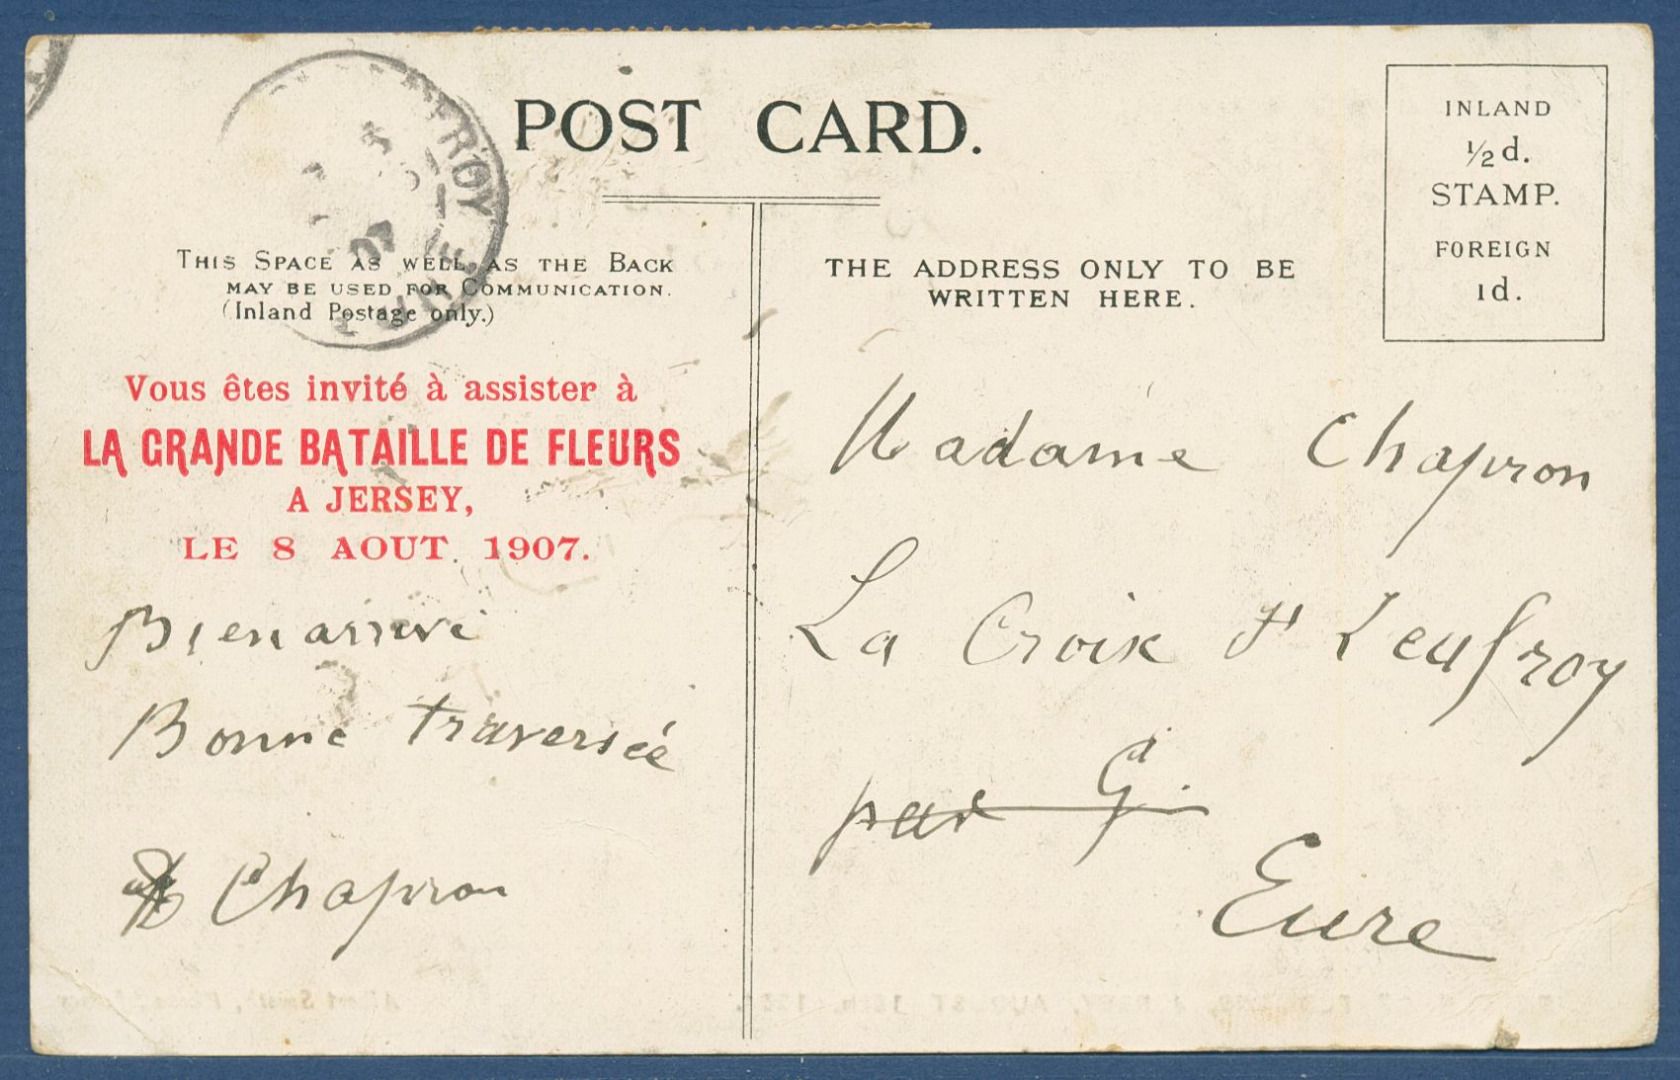 POST CARD.
INLAND
½d.
STAMP.
FOREIGN
1d.
THIS SPACE AS WELL AS THE BACK
MAY BE USED FOR COMMUNICATION.
(Inland Postage only.)
THE ADDRESS ONLY TO BE
WRITTEN HERE.
Vous êtes invité à assister à
LA GRANDE BATAILLE DE FLEURS
A JERSEY,
LE 8 AOUT 1907.
Bien arrivé
Bonne traversée
Chapron
Madame Chapron
La Croix St Leufroy
par G.
Eure
07